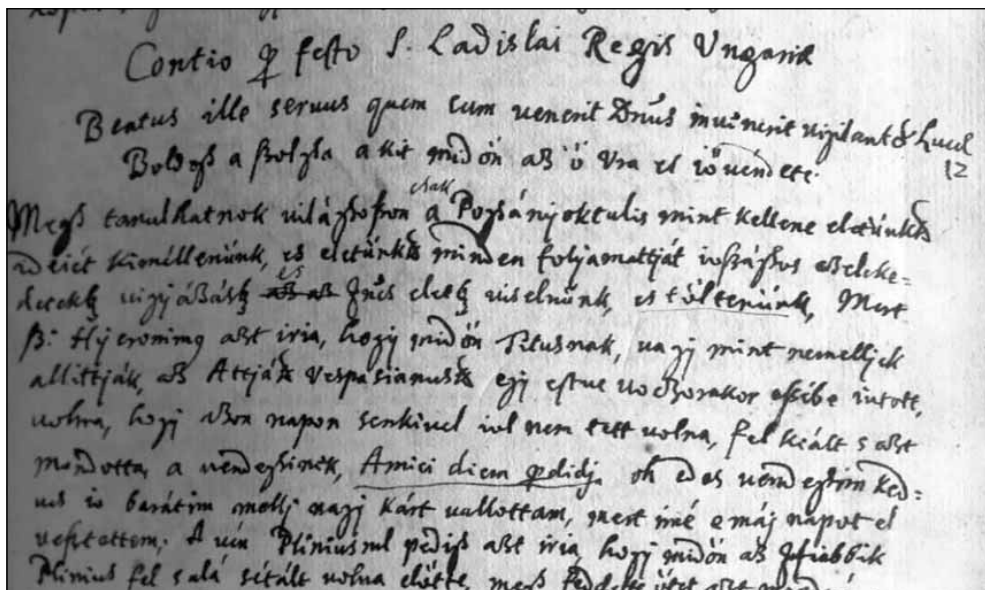 Contio ꝑ festo S. Ladislai Regis Ungariæ
Beatus ille servus quem cum venerit Dnus invenerit vigilantē Lucæ
12
Boldogh a szolgha a kit midőn az ő Ura el iövendete
csak
Megh tanulhatnok világhoson a Poghányoktulis mint kellene életünknek
ideiét kimélenünk, es életünknek minden folyamattját
es
vigyázásban az az életben viselnünk, es töltenünk, Mert
Sz: Hyeronimus azt iria, hogy midőn Titusnak, vagy mint nemellyek
allittják, az Attjának Vespasianusnak egy estve vaczorakor eszibe iutott,
volna, hogy azon napon senkivel iol nem tett volna, fel kiált s azt
mondotta, a vendeghinek, Amici diem ꝑdidj. oh edes vendeghim ked=
ves io barátim melly nagy kárt vallottam, mert imé e máj napot el
vesztettem. A vén Pliniusrul pedigh azt iria, hogy midőn az Ifiabbik
Plinius fel s alá sétált volna előtte, megh azt